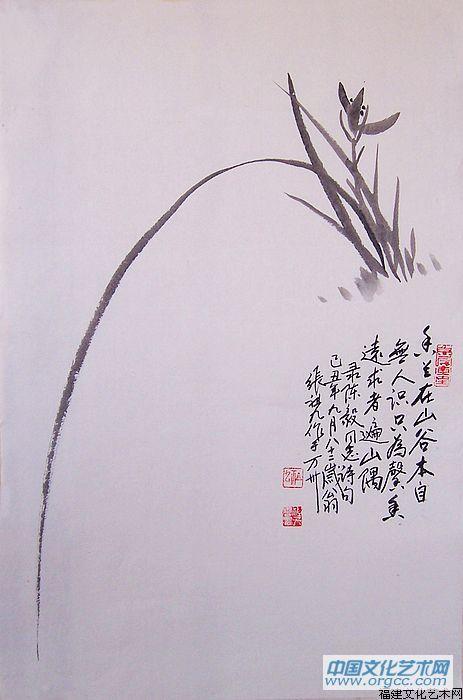 兰在山谷本自
無人识只為馨香
遠求者遍山隅
录陈毅同志詩句
己丑年九月八十三歲翁
張九作于万州
中国文化艺术网
www.orgcc.com
福建文化艺术网